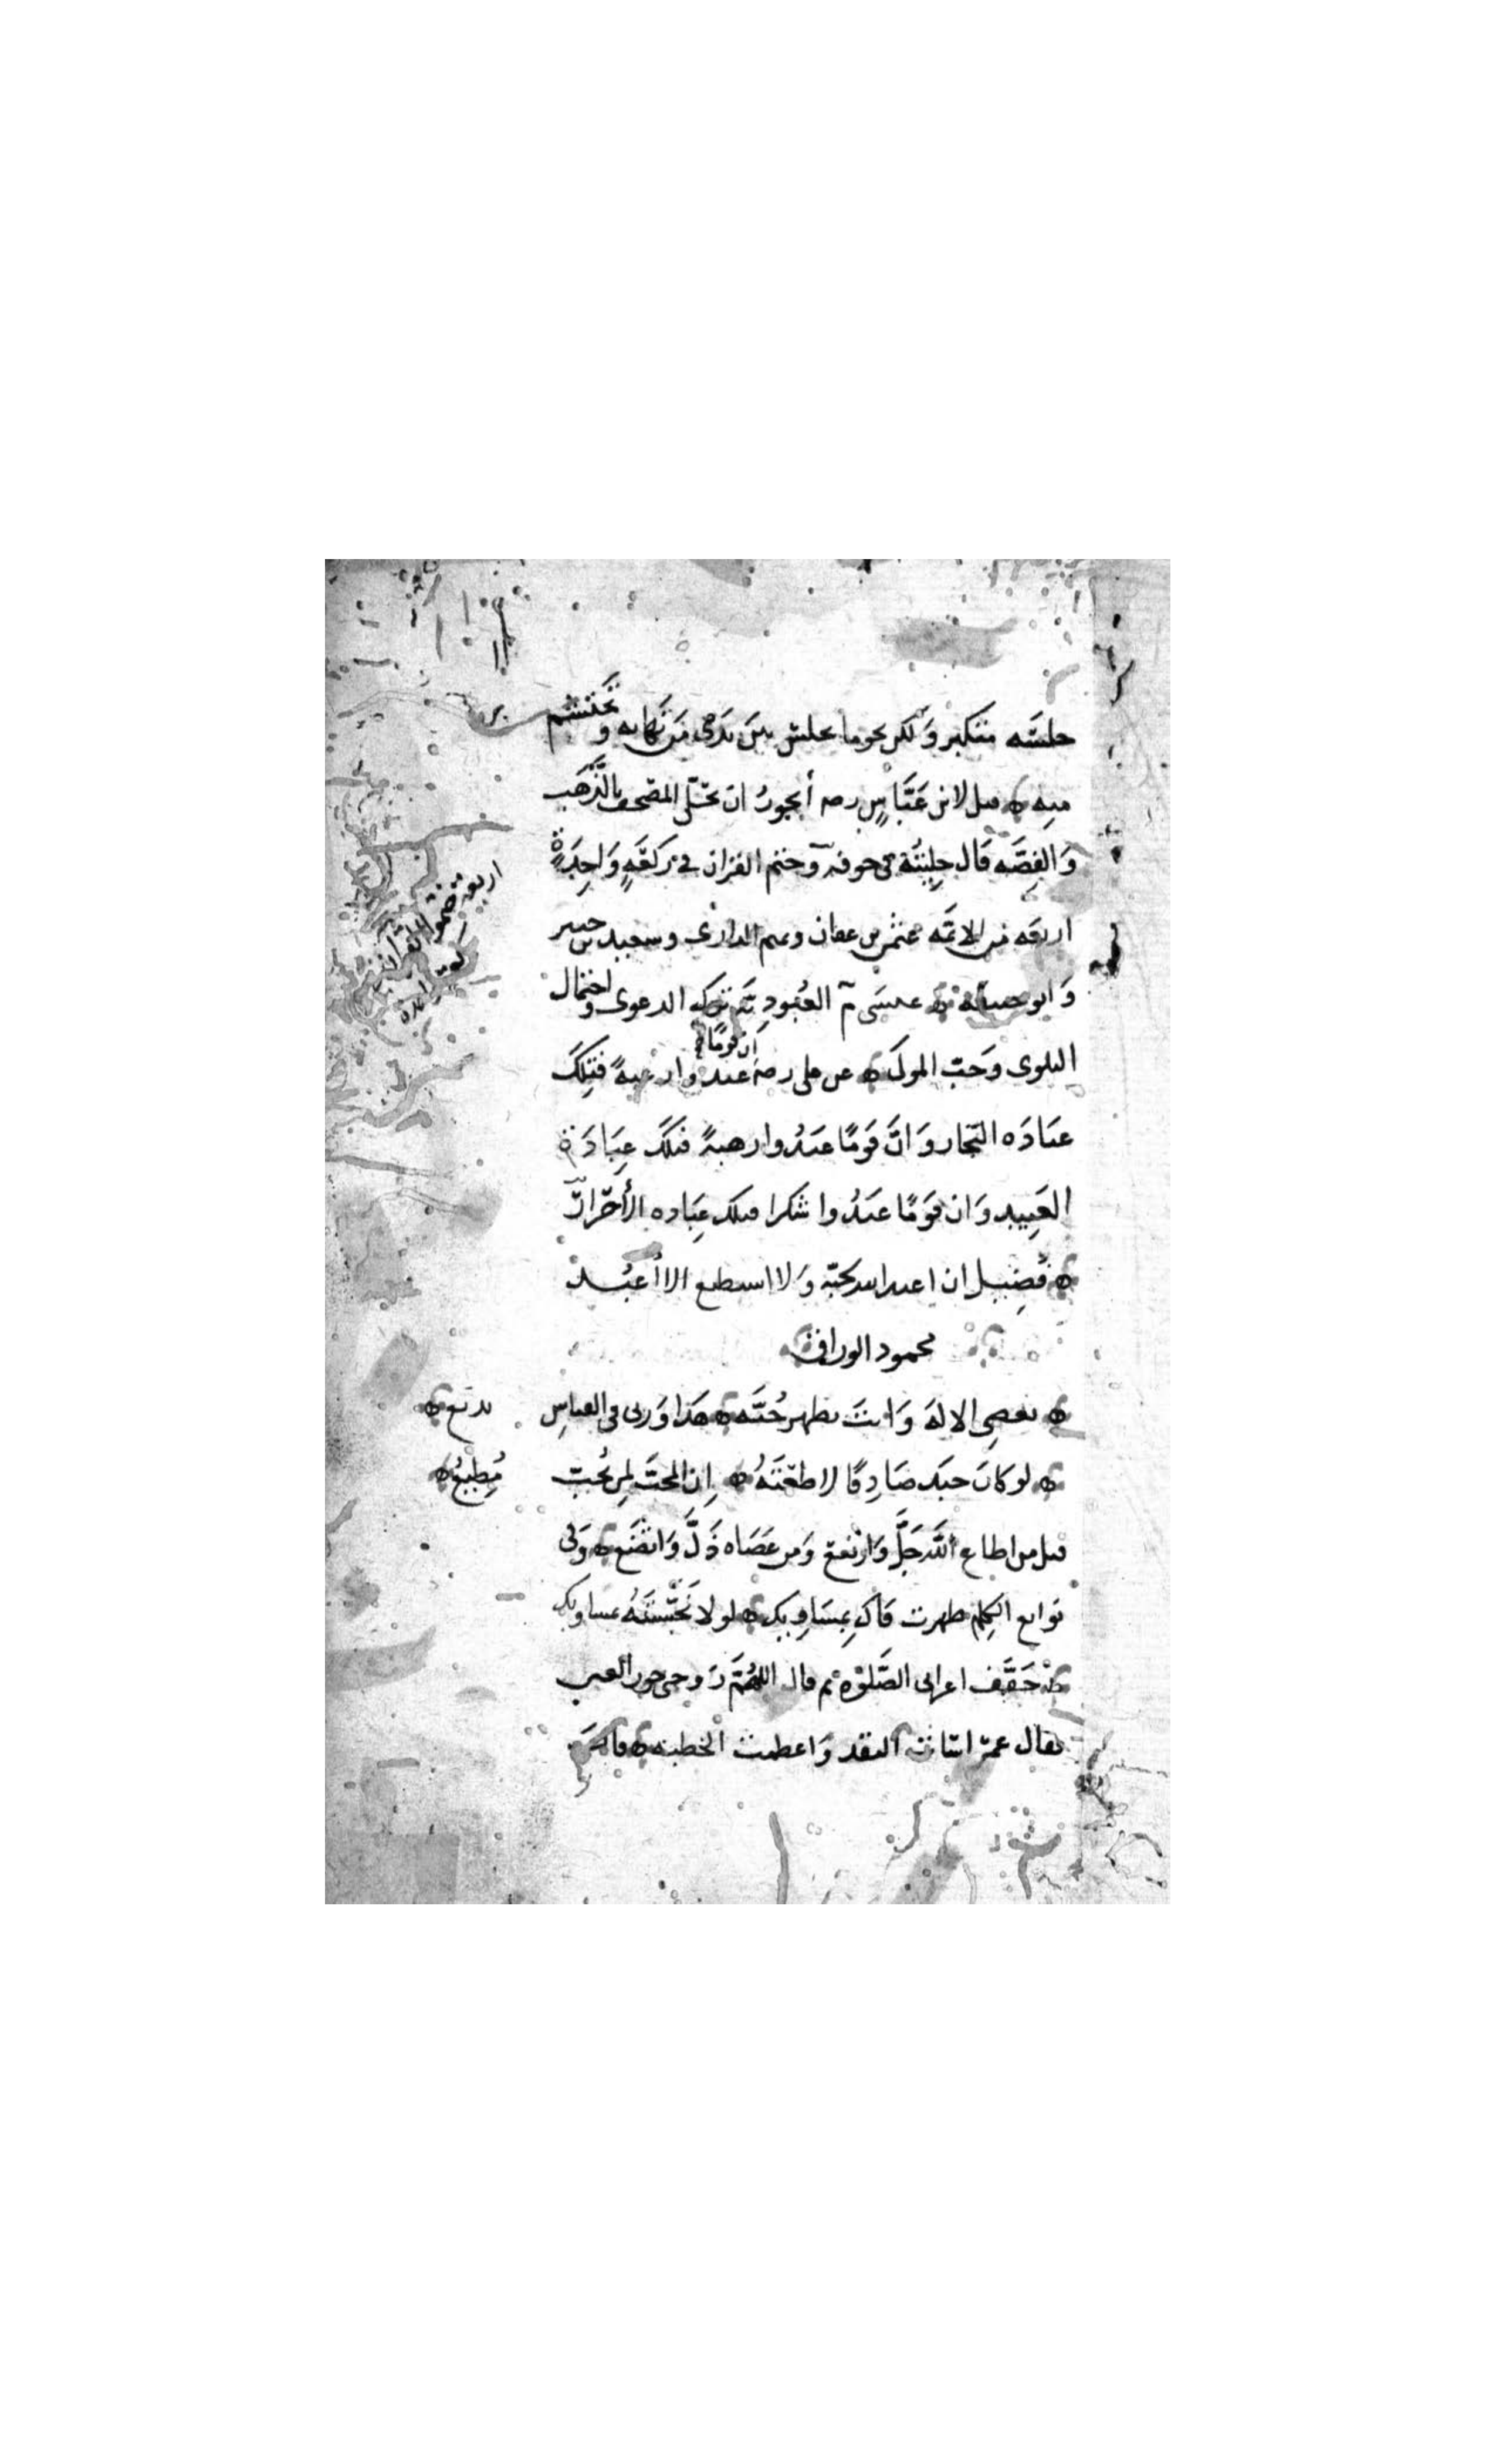 جلسَه متكبر وَلكن نحو ما يجلس بين يَدَى مَن يَهابه و يَحتشم
منه قيل لابن عَبَّاسٍ رضه أيجوز ان تحَلّى المصحف بالذَّهَب
وَالفِضَّه قَال حِليَتُه فى جوفه وَختم القران فى رَكعَةٍ وَاحِدَةٍ
اربعَه من الايمَّه عثمن بن عفان وتميم الدارى وسعيد بن جبير
وَابو حنيفة عيسَى العُبُوديَّه تَرك الدعوى واحتمال
البلوى وَحبّ المولى عن على رضه ان قومًا عبدوا رغبةً فتِلكَ
عبَادَه التّجار وَانَّ قَومًا عبَدُوا رهبةً فتلكَ عِبَادَة
العَبِيد وَان قومًا عبَدُوا شكرا فتلك عِبَاده الأحرَار
فُضَيل ان اعبد الله لحبّه وَلا استطيع الا أعبُده
محمود الوراق
تعصِى الالهَ وَانتَ تظهر حُبَّه هَذا وَربى فى القياسِ بديع
لو كانَ حبك صَادِقًا لاطعتَهُ اِن المحبَّ لمن يُحبّ مُطيعُ
قيل من اطاع اللهَ جَلَّ وَارتفع وَمن عَصَاه ذَلَّ وَاتضَع وَفى
نوابغ الكلِم طهرت فَاك بمسَاويك لولا نجَّستَهُ بمساويك
خَفَّف اعرابى الصَّلوة ثم قال اللهُمَّ زَوجنى حور العين
فقال عمر اسَات النقد وَاعظمت الخطبة قال
اربعة ختموا القران